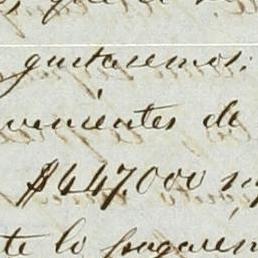 gustaremos:
venientes de
$647000
te lo pagarem